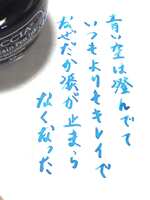 青い空は澄んでて
いつもよりもキレイで
なぜだか涙が止まら
なくなった